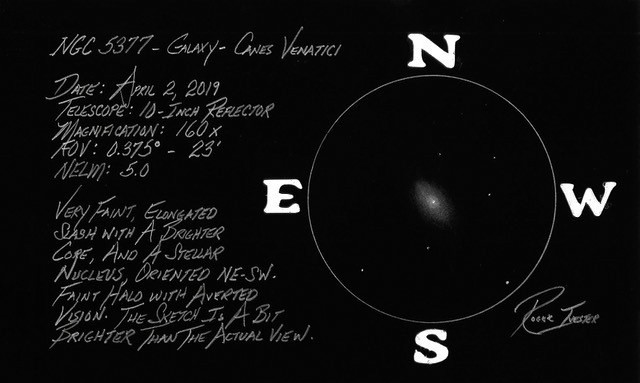 NGC 5377 - Galaxy - Canes Venatici
Date: April 2, 2019
Telescope: 10-Inch Reflector
Magnification: 160x
FOV: 0.375° - 23'
NELM: 5.0
Very Faint, Elongated
Slash With A Brighter
Core, And A Stellar
Nucleus, Oriented NE-SW.
Faint Halo With Averted
Vision. The Sketch Is A Bit
Brighter Than The Actual View.
N
E
W
S
Roger Ivester